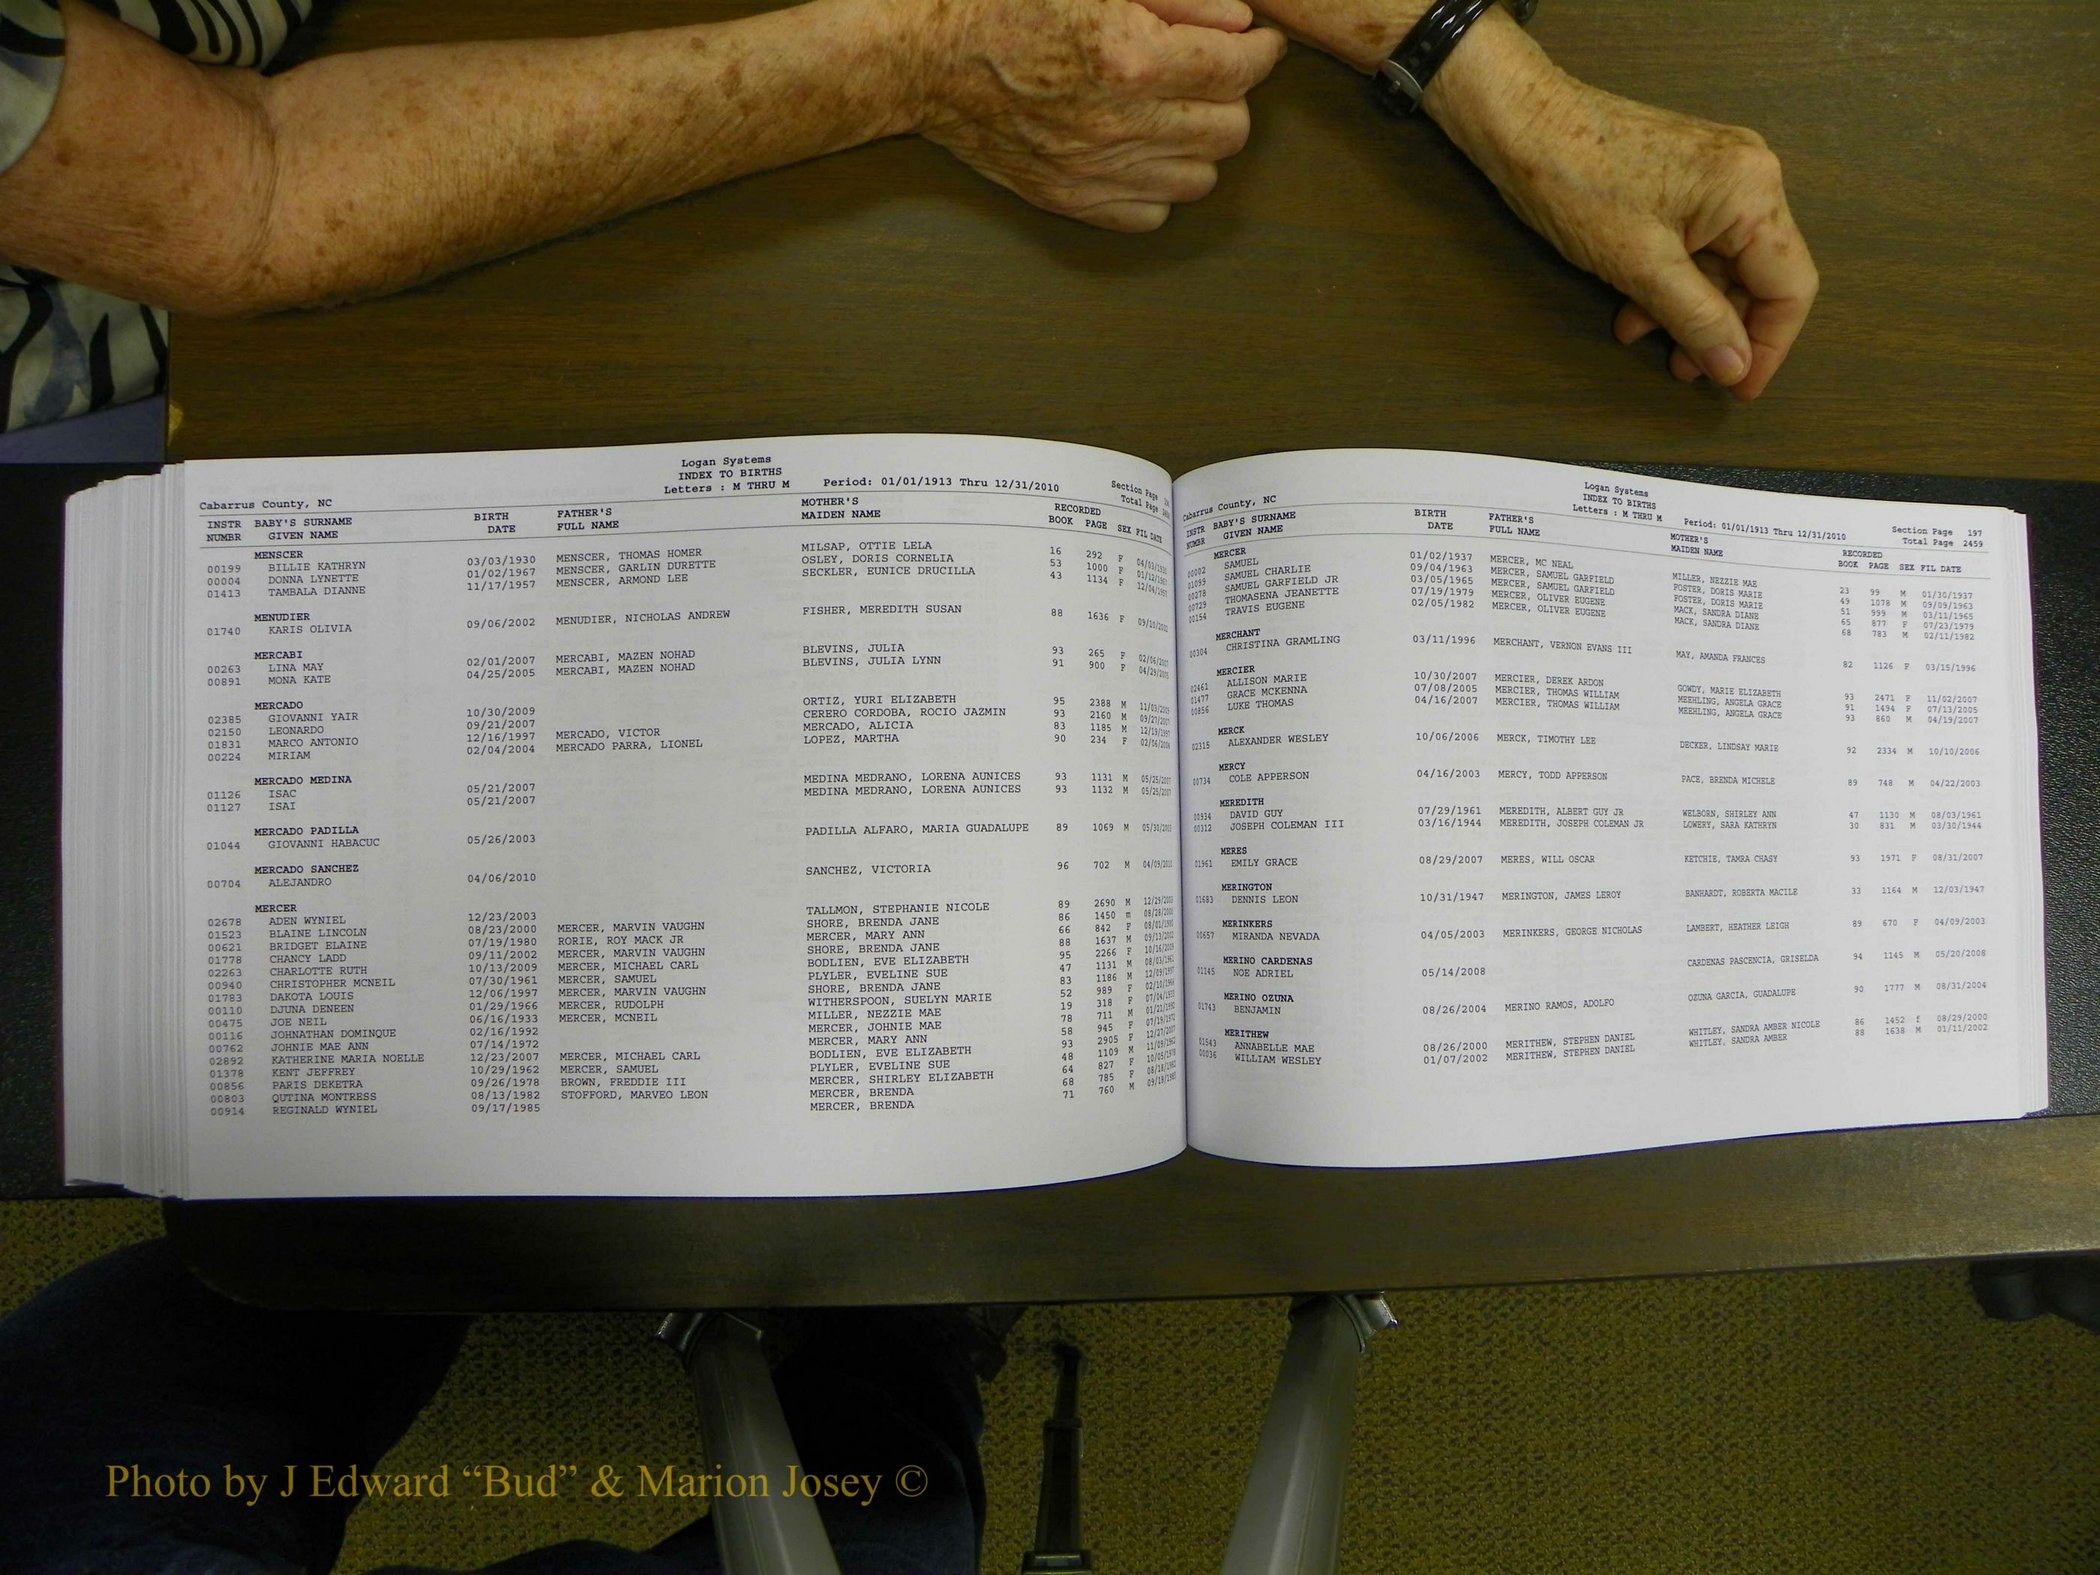 Logan Systems
INDEX TO BIRTHS
Letters : M THRU M Period: 01/01/1913 Thru 12/31/2010 Section Page
Cabarrus County, NC Total Page
INSTR BABY'S SURNAME BIRTH FATHER'S MOTHER'S RECORDED
NUMBR GIVEN NAME DATE FULL NAME MAIDEN NAME BOOK PAGE SEX FIL DATE
MENSCER
00199 BILLIE KATHRYN 03/03/1930 MENSCER, THOMAS HOMER MILSAP, OTTIE LELA 16 292 F 04/03/1930
00004 DONNA LYNETTE 01/02/1967 MENSCER, GARLIN DURETTE OSLEY, DORIS CORNELIA 53 1000 F 01/12/1967
01413 TAMBALA DIANNE 11/17/1957 MENSCER, ARMOND LEE SECKLER, EUNICE DRUCILLA 43 1134 F 12/04/1957
MENUDIER
01740 KARIS OLIVIA 09/06/2002 MENUDIER, NICHOLAS ANDREW FISHER, MEREDITH SUSAN 88 1636 F 09/10/2002
MERCABI
00263 LINA MAY 02/01/2007 MERCABI, MAZEN NOHAD BLEVINS, JULIA 93 265 F 02/06/2007
00891 MONA KATE 04/25/2005 MERCABI, MAZEN NOHAD BLEVINS, JULIA LYNN 91 900 F 04/29/2005
MERCADO
02385 GIOVANNI YAIR 10/30/2009 ORTIZ, YURI ELIZABETH 95 2388 M 11/03/2009
02150 LEONARDO 09/21/2007 CERERO CORDOBA, ROCIO JAZMIN 93 2160 M 09/27/2007
01831 MARCO ANTONIO 12/16/1997 MERCADO, VICTOR MERCADO, ALICIA 83 1185 M 12/19/1997
00224 MIRIAM 02/04/2004 MERCADO PARRA, LIONEL LOPEZ, MARTHA 90 234 F 02/06/2004
MERCADO MEDINA
01126 ISAC 05/21/2007 MEDINA MEDRANO, LORENA AUNICES 93 1131 M 05/25/2007
01127 ISAI 05/21/2007 MEDINA MEDRANO, LORENA AUNICES 93 1132 M 05/25/2007
MERCADO PADILLA
01044 GIOVANNI HABACUC 05/26/2003 PADILLA ALFARO, MARIA GUADALUPE 89 1069 M 05/30/2003
MERCADO SANCHEZ
00704 ALEJANDRO 04/06/2010 SANCHEZ, VICTORIA 96 702 M 04/09/2010
MERCER
02678 ADEN WYNIEL 12/23/2003 TALLMON, STEPHANIE NICOLE 89 2690 M 12/29/2003
01523 BLAINE LINCOLN 08/23/2000 MERCER, MARVIN VAUGHN SHORE, BRENDA JANE 86 1450 m 08/28/2000
00621 BRIDGET ELAINE 07/19/1980 RORIE, ROY MACK JR MERCER, MARY ANN 66 842 F 08/01/1980
01778 CHANCY LADD 09/11/2002 MERCER, MARVIN VAUGHN SHORE, BRENDA JANE 88 1637 M 09/13/2002
02263 CHARLOTTE RUTH 10/13/2009 MERCER, MICHAEL CARL BODLIEN, EVE ELIZABETH 95 2266 F 10/16/2009
00940 CHRISTOPHER MCNEIL 07/30/1961 MERCER, SAMUEL PLYLER, EVELINE SUE 47 1131 M 08/03/1961
01783 DAKOTA LOUIS 12/06/1997 MERCER, MARVIN VAUGHN SHORE, BRENDA JANE 83 1186 M 12/09/1997
00110 DJUNA DENEEN 01/29/1966 MERCER, RUDOLPH WITHERSPOON, SUELYN MARIE 52 989 F 02/10/1966
00475 JOE NEIL 06/16/1933 MERCER, MCNEIL MILLER, NEZZIE MAE 19 318 F 07/04/1933
00116 JOHNATHAN DOMINQUE 02/16/1992 MERCER, JOHNIE MAE 78 711 M
00762 JOHNIE MAE ANN 07/14/1972 MERCER, MARY ANN 58 945 F 07/19/1972
02892 KATHERINE MARIA NOELLE 12/23/2007 MERCER, MICHAEL CARL BODLIEN, EVE ELIZABETH 93 2905 F 12/27/2007
01378 KENT JEFFREY 10/29/1962 MERCER, SAMUEL PLYLER, EVELINE SUE 48 1109 M 11/09/1962
00856 PARIS DEKETRA 09/26/1978 BROWN, FREDDIE III MERCER, SHIRLEY ELIZABETH 64 827 F 10/05/1978
00803 QUTINA MONTRESS 08/13/1982 STOFFORD, MARVEO LEON MERCER, BRENDA 68 785 F 08/18/1982
00914 REGINALD WYNIEL 09/17/1985 MERCER, BRENDA 71 760 M 09/18/1985
Logan Systems
INDEX TO BIRTHS
Letters : M THRU M Period: 01/01/1913 Thru 12/31/2010 Section Page 197
Cabarrus County, NC Total Page 2459
INSTR BABY'S SURNAME BIRTH FATHER'S MOTHER'S RECORDED
NUMBR GIVEN NAME DATE FULL NAME MAIDEN NAME BOOK PAGE SEX FIL DATE
MERCER
00002 SAMUEL 01/02/1937 MERCER, MC NEAL MILLER, NEZZIE MAE 23 99 M 01/30/1937
01099 SAMUEL CHARLIE 09/04/1963 MERCER, SAMUEL GARFIELD FOSTER, DORIS MARIE 49 1078 M 09/09/1963
00278 SAMUEL GARFIELD JR 03/05/1965 MERCER, SAMUEL GARFIELD FOSTER, DORIS MARIE 51 999 M 03/11/1965
00729 THOMASENA JEANETTE 07/19/1979 MERCER, OLIVER EUGENE MACK, SANDRA DIANE 65 877 F 07/23/1979
00154 TRAVIS EUGENE 02/05/1982 MERCER, OLIVER EUGENE MACK, SANDRA DIANE 68 783 M 02/11/1982
MERCHANT
00304 CHRISTINA GRAMLING 03/11/1996 MERCHANT, VERNON EVANS III MAY, AMANDA FRANCES 82 1126 F 03/15/1996
MERCIER
02461 ALLISON MARIE 10/30/2007 MERCIER, DEREK ARDON GOWDY, MARIE ELIZABETH 93 2471 F 11/02/2007
01477 GRACE MCKENNA 07/08/2005 MERCIER, THOMAS WILLIAM MEEHLING, ANGELA GRACE 91 1494 F 07/13/2005
00856 LUKE THOMAS 04/16/2007 MERCIER, THOMAS WILLIAM MEEHLING, ANGELA GRACE 93 860 M 04/19/2007
MERCK
02315 ALEXANDER WESLEY 10/06/2006 MERCK, TIMOTHY LEE DECKER, LINDSAY MARIE 92 2334 M 10/10/2006
MERCY
00734 COLE APPERSON 04/16/2003 MERCY, TODD APPERSON PACE, BRENDA MICHELE 89 748 M 04/22/2003
MEREDITH
00934 DAVID GUY 07/29/1961 MEREDITH, ALBERT GUY JR WELBORN, SHIRLEY ANN 47 1130 M 08/03/1961
00312 JOSEPH COLEMAN III 03/16/1944 MEREDITH, JOSEPH COLEMAN JR LOWERY, SARA KATHRYN 30 831 M 03/30/1944
MERES
01961 EMILY GRACE 08/29/2007 MERES, WILL OSCAR KETCHIE, TAMRA CHASY 93 1971 F 08/31/2007
MERINGTON
01683 DENNIS LEON 10/31/1947 MERINGTON, JAMES LEROY BANHARDT, ROBERTA MACILE 33 1164 M 12/03/1947
MERINKERS
00657 MIRANDA NEVADA 04/05/2003 MERINKERS, GEORGE NICHOLAS LAMBERT, HEATHER LEIGH 89 670 F 04/09/2003
MERINO CARDENAS
01145 NOE ADRIEL 05/14/2008 CARDENAS PASCENCIA, GRISELDA 94 1145 M 05/20/2008
MERINO OZUNA
01743 BENJAMIN 08/26/2004 MERINO RAMOS, ADOLFO OZUNA GARCIA, GUADALUPE 90 1777 M 08/31/2004
MERITHEW
01543 ANNABELLE MAE 08/26/2000 MERITHEW, STEPHEN DANIEL WHITLEY, SANDRA AMBER NICOLE 86 1452 f 08/29/2000
00036 WILLIAM WESLEY 01/07/2002 MERITHEW, STEPHEN DANIEL WHITLEY, SANDRA AMBER 88 1638 M 01/11/2002
Photo by J Edward “Bud” & Marion Josey ©